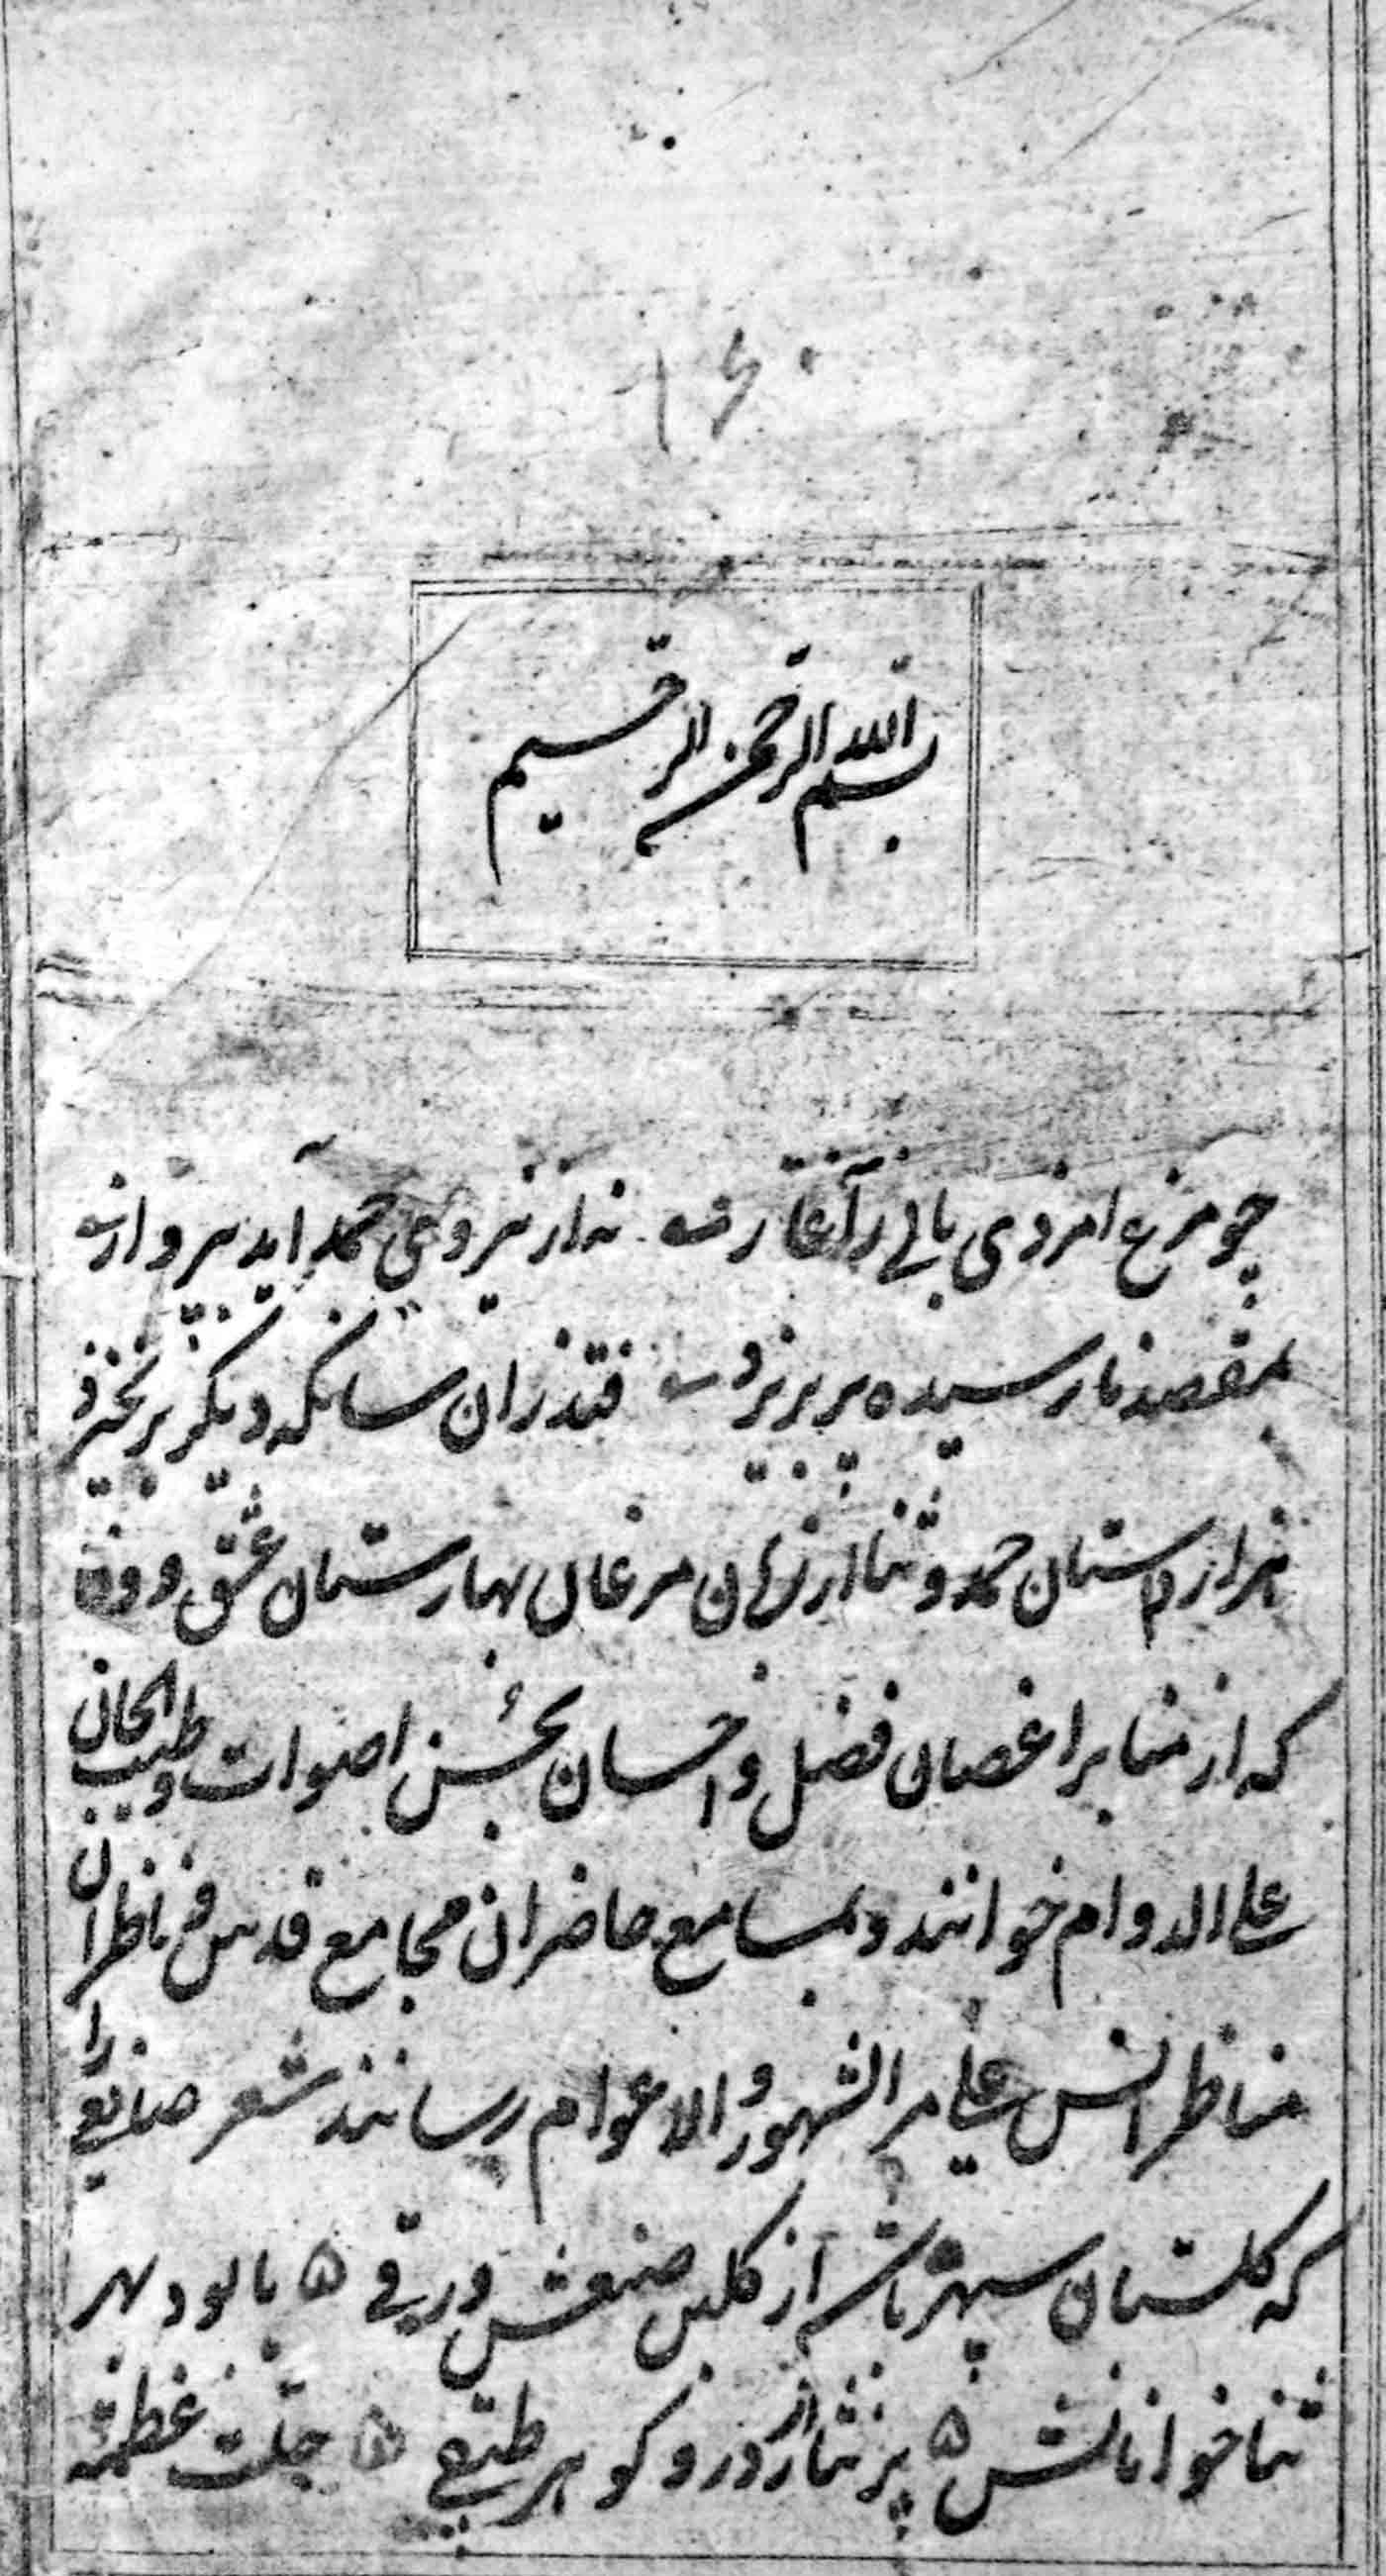 ۱۶۰
بسم الله الرحمن الرحیم
چو مرغ امر ذی بالی ز آغاز نه از نیروی حمد آید بپرواز
بمقصد نارسیده پر بریزد فتد زان سانکه دیگر برنخیزد
هزار داستان حمد و ثنا از زبان مرغان بهارستان عشق و وفا
که از منابر اغصان فضل و احسان بحسن اصوات و طیب الحان
علی الدوام خوانند و بمسامع حاضران مجامع قدس و ناظران
مناظر انس علی مر الشهور و الاعوام رسانند شعر صانعی را
که گلستان سپهر باشد از گلبن صنعش ورقی ۵ بالود بهر
ثناخوانانش ۵ پر نثار از در و گوهر طبقی ۵ جلت عظمته